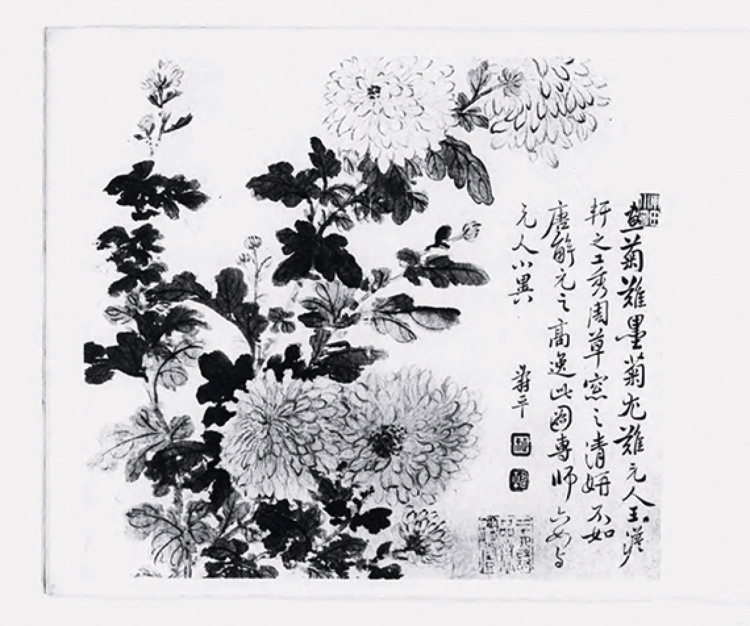 畫菊難墨菊尤難元人王澹
軒之工秀周草窓之清妍不如
唐解元之高逸此圖專師六如与
元人小異
壽平